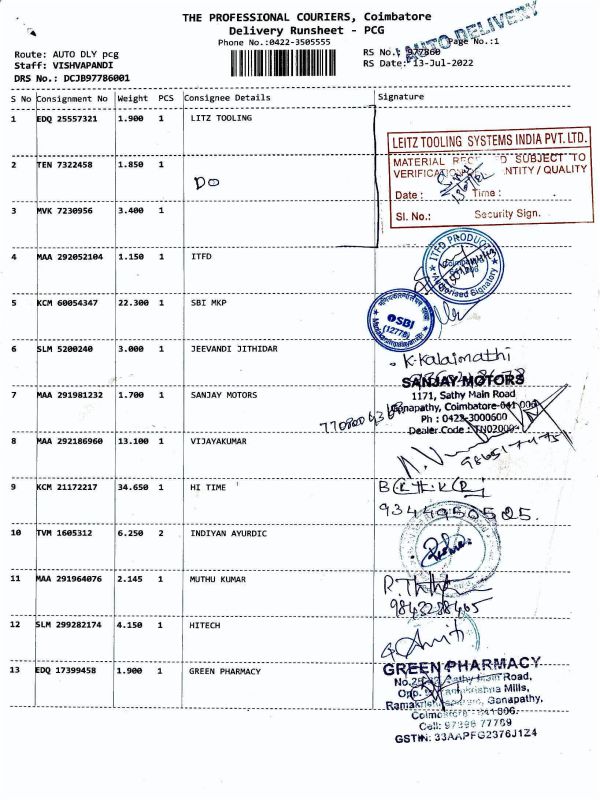 THE PROFESSIONAL COURIERS, Coimbatore
Delivery Runsheet - PCG
Phone No.:0422-3505555
AUTO DELIVERY
Page No.:1
Route: AUTO DLY pcg
Staff: VISHVAPANDI
DRS No.: DCJB97786001
RS No.: 977860
RS Date: 13-Jul-2022
S No Consignment No Weight PCS Consignee Details Signature
1 EDQ 25557321 1.900 1 LITZ TOOLING
LEITZ TOOLING SYSTEMS INDIA PVT. LTD.
MATERIAL SUBJECT TO
VERIFICATION QUANTITY / QUALITY
Date : Time :
Sl. No.: Security Sign.
2 TEN 7322458 1.850 1
Do
3 MVK 7230956 3.400 1
4 MAA 292052104 1.150 1 ITFD
ITFD PRODUCTS
Authorised Signatory
5 KCM 60054347 22.300 1 SBI MKP
SBI
(12778)
6 SLM 5200240 3.000 1 JEEVANDI JITHIDAR
K. Kalaimathi
7 MAA 291981232 1.700 1 SANJAY MOTORS
SANJAY MOTORS
1171, Sathy Main Road
Ganapathy, Coimbatore-641 006
Ph : 0422-3000600
Dealer Code : TN02000
8 MAA 292186960 13.100 1 VIJAYAKUMAR
9 KCM 21172217 34.650 1 HI TIME
10 TVM 1605312 6.250 2 INDIYAN AYURDIC
11 MAA 291964076 2.145 1 MUTHU KUMAR
12 SLM 299282174 4.150 1 HITECH
13 EDQ 17399458 1.900 1 GREEN PHARMACY
GREEN PHARMACY
Sathy Main Road,
Opp. Ramakrishna Mills,
Ganapathy,
Coimbatore - 641006.
Cell: 97896 77789
GSTIN: 33AAPFG2376J1Z4